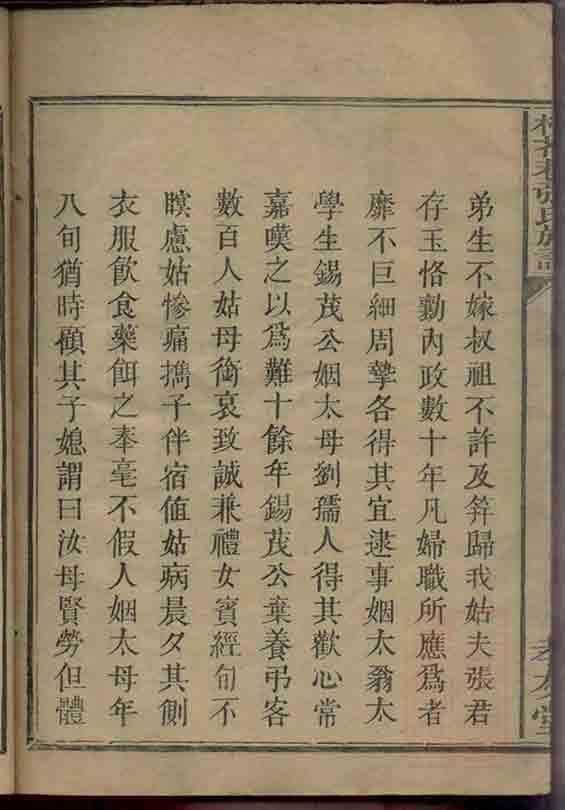 弟生不嫁叔祖不許及筓歸我姑夫張君
存玉恪勤內政數十年凡婦職所應爲者
靡不巨細周摯各得其宜逮事姻太翁太
學生錫茂公姻太母劉孺人得其歡心常
嘉嘆之以爲難十餘年錫茂公棄養弔客
數百人姑母銜哀致誠兼禮女賓經旬不
瞑慮姑慘痛擕子伴宿值姑病晨夕其側
衣服飮食藥餌之奉毫不假人姻太母年
八旬猶時顧其子媳謂曰汝母賢勞但體
張氏族譜
孝友堂